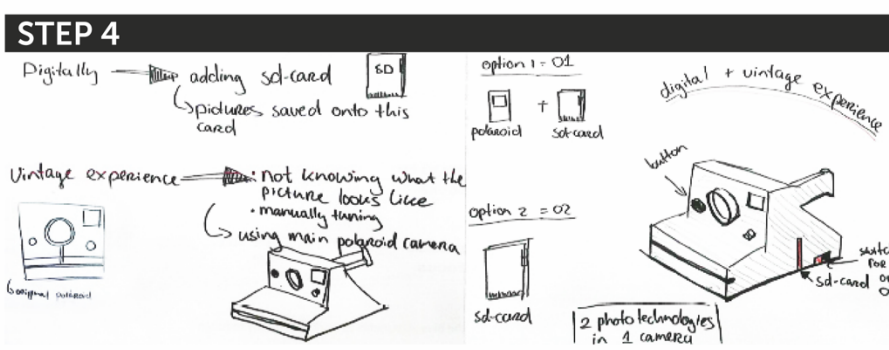 STEP 4
Digitally
adding sd-card
SD
pictures saved onto this
card
Vintage experience
• not knowing what the
picture looks like
• manually tuning
using main polaroid camera
original polaroid
option 1 = O1
polaroid
+
sd-card
option 2 = O2
sd-card
digital + vintage experience
button
sd-card
FOR
2 photo technologies
in 1 camera